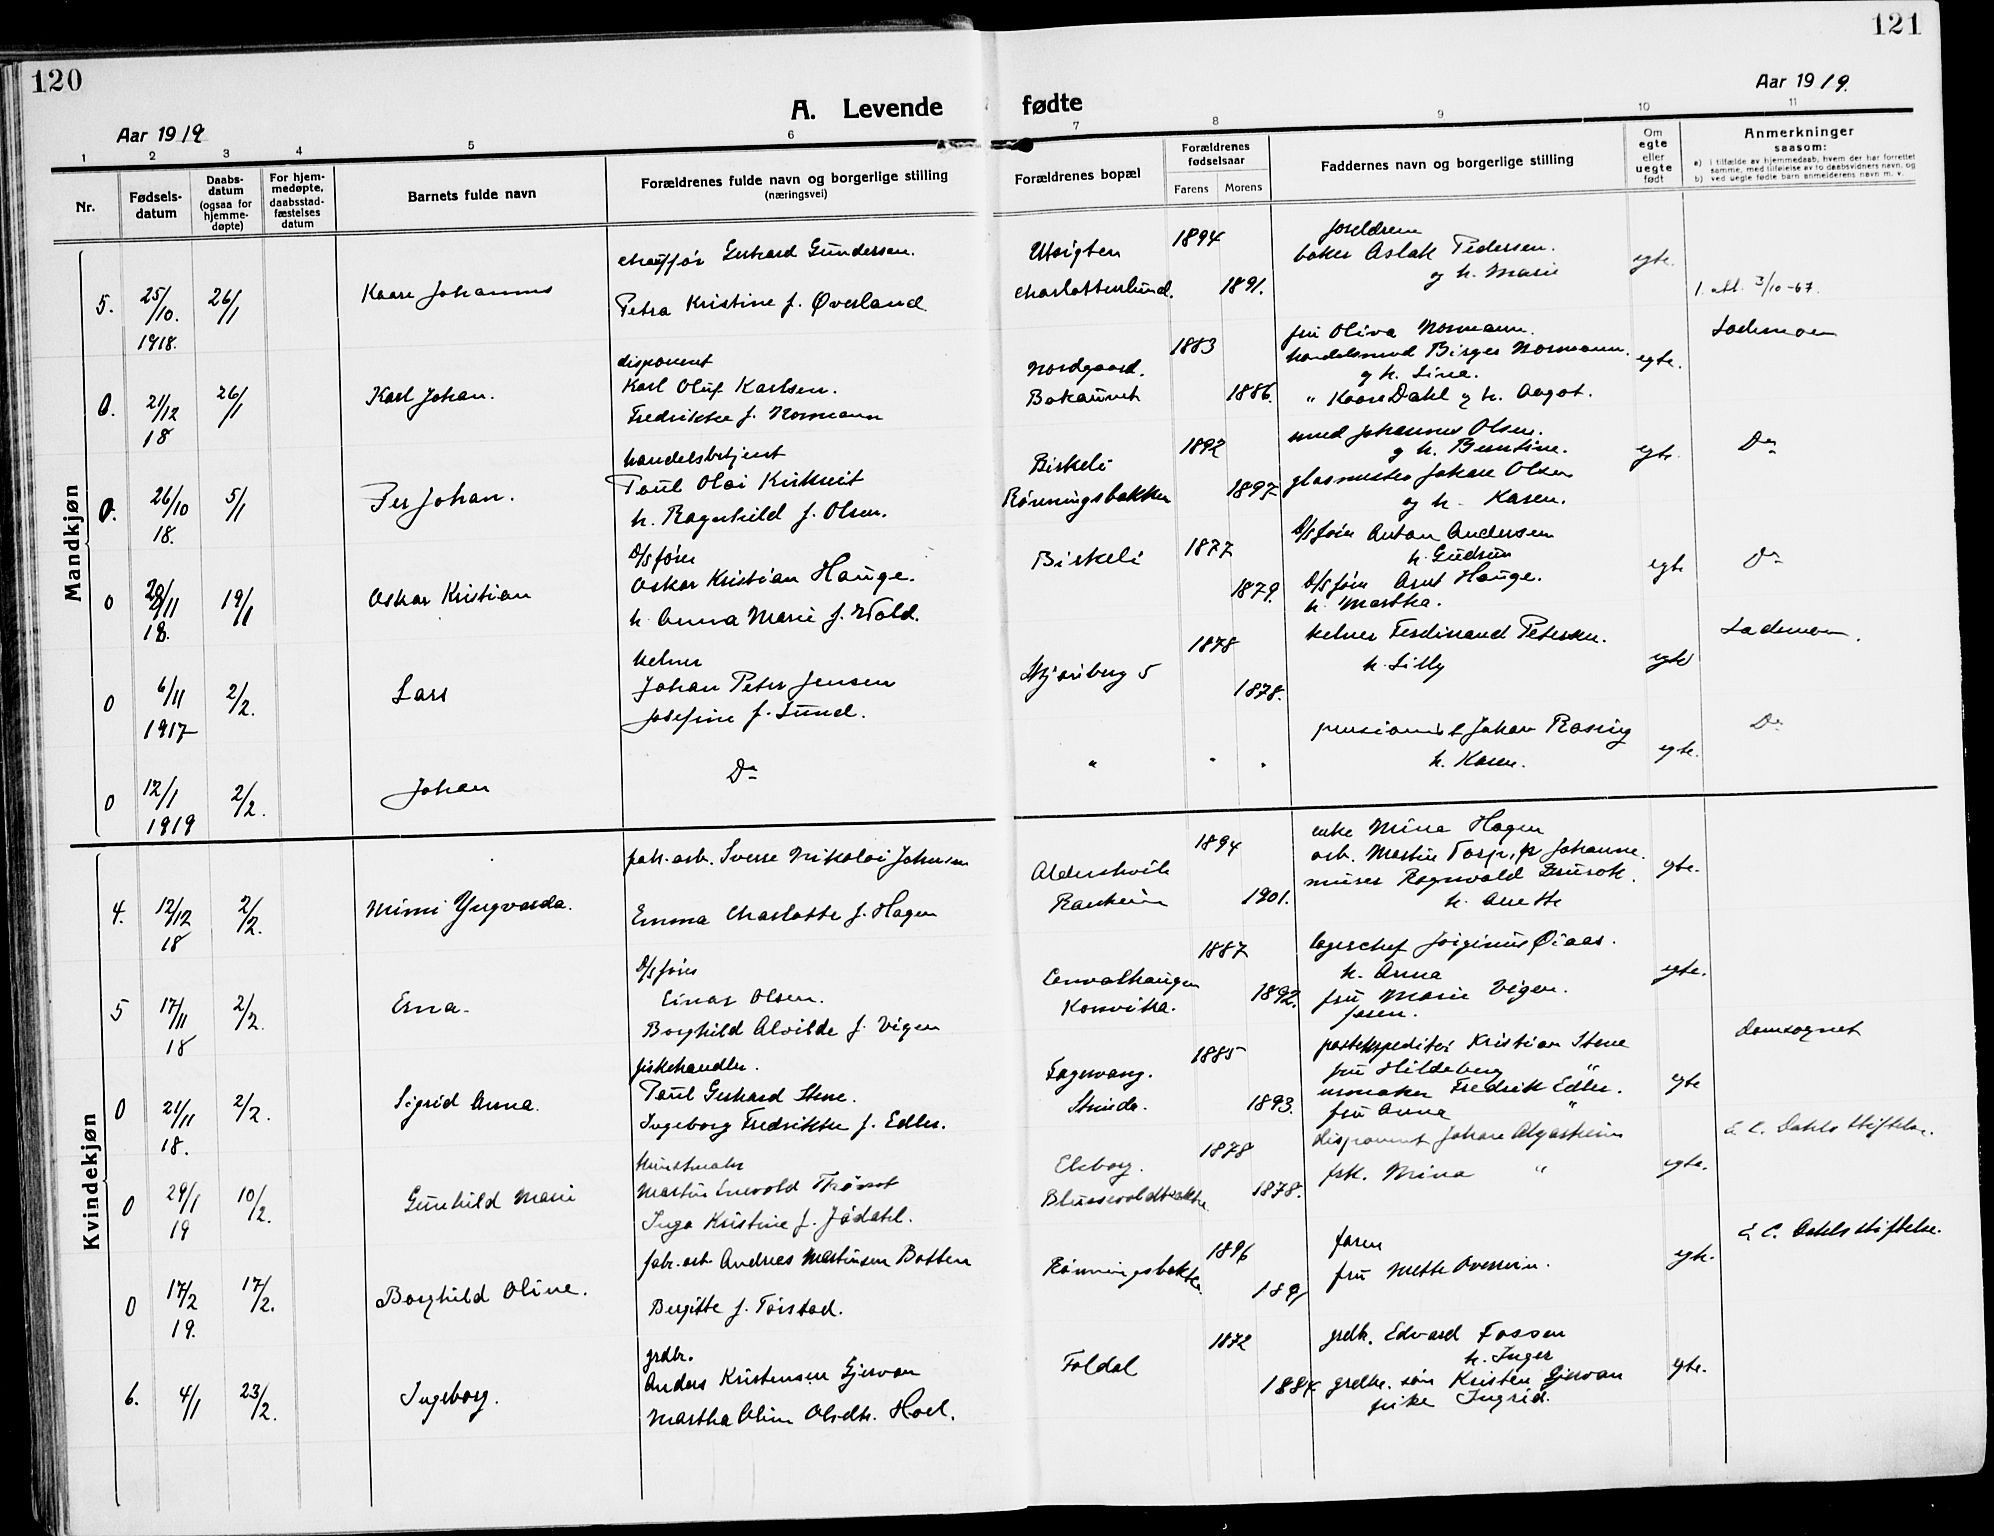 120
121
A. Levende fødte
Aar 1919
Aar 1919.
1 2 3 4 5 6 7 8 9 10 11
Nr.
Fødsels-
datum
Daabs-
datum
(ogsaa for
hjemme-
døpte)
For hjem-
medøpte,
daabsstad-
fæstelses
datum
Barnets fulde navn
Forældrenes fulde navn og borgerlige stilling
(næringsvei)
Forældrenes bopæl
Forældrenes
fødselsaar
Farens Morens
Faddernes navn og borgerlige stilling
Om
egte
eller
uegte
født
Anmerkninger
saasom:
a) i tilfælde av hjemmedaab, hvem der har forrettet
samme, med tilføielse av to daabsvidners navn, og
b) ved uegte fødte barn anmelderens navn m. v.
Mandkjøn
5. 25/10. 1918. 26/1 Kaare Johannes
chauffør Gerhard Gundersen.
Petra Kristine f. Øverland
Utsigten
Charlottenlund.
1894
1891.
foreldrene
baker Aslak Pedersen.
og h. Marie
egte.
1. att. 3/10-67.
0. 21/12 18 26/1 Karl Johan.
disponent
Karl Oluf Karlsen.
Fredrikke f. Normann
Nordgaard.
Bakaunet
1883
1886.
fru Oliva Normann.
handelsmand Birger Normann.
og h. Lina.
" Kaare Dahl og h. Aagot.
egte.
Lademoen
0. 26/10 18. 5/1 Per Johan.
handelsbetjent
Paul Olai Kirkveit
h. Ragnhild f. Olsen.
Birkeli
Rønningsbakken
1892
1897
smed Johannes Olsen.
og h. Berntine.
glasmester Johan Olsen
og h. Karen.
egte.
Do
0 29/11 18. 19/1 Oskar Kristian
D/S fører
Oskar Kristian Hauge.
h. Anna Marie f. Wold.
Birkeli
1877
1879.
D/S fører Anton Andersen
h. Gudrun
D/S fører Arnt Hauge.
h. Martha.
egte
Do
0 6/11 1917 2/2. Lars
kelner
Johan Peter Jensen
Josefine f. Lund.
5
1878
1878.
kelner Ferdinand Petersen.
h. Lilly
egte
Lademoen.
0 12/1 1919 2/2. Johan
Do
" " "
pensionist Johan Rosing
h. Karen.
egte.
Do
Kvindekjøn
4. 12/12 18 2/2. Mimi Yngvarda.
fabr. arb. Sverre Nikolai Johnsen
Emma Charlotte f. Hagen
Aldershvile
Ranheim
1894
1901.
enke Mina Hagen
arb. Martin Torp, h. Johanne.
murer Ragnvald
h. Anette
egte.
5 17/11 18 2/2. Erna.
D/S fører
Einar Olsen.
Borghild Alvilde f. Vigen
Korsvika.
1887
1892.
lagerchef Jørginus Øiaas.
h. Anna
fru Marie Vigen.
faren.
egte.
0 21/11 18. 2/2. Sigrid Anna.
fiskehandler.
Paul Gerhard Stene.
Ingeborg Fredrikke f. Edler.
Fagervang.
Strinda.
1885
1893.
postekspeditør Kristian Stene
fru Hildeborg "
urmaker Fredrik Edler.
fru Anna "
egte
Domsognet
0 29/1 19 10/2. Gunhild Marie
kunstmaler
Martin Enevold
Inga Kristine f. Jødahl.
Elsborg.
1878
1878.
disponent Johan Algarheim
frk. Mina "
egte.
E. C. Dahls stiftelse.
0 17/2 19. 17/2. Borghild Oline.
fabr. arb. Andreas Martinsen Botten
Bergitte f. Torstad.
Rønningsbakken.
1896
1891
faren
fru Mette
egte.
E. C. Dahls stiftelse.
6. 4/1 23/2. Ingeborg.
grdbr.
Anders Kristensen Gjervan
Martha Oline Olsdtr. Hoel.
Foldal
1872
1884
grdb. Edvard Fossen
h. Inger
grdbr. søn Kristen Gjervan
pike Ingrid.
egte.